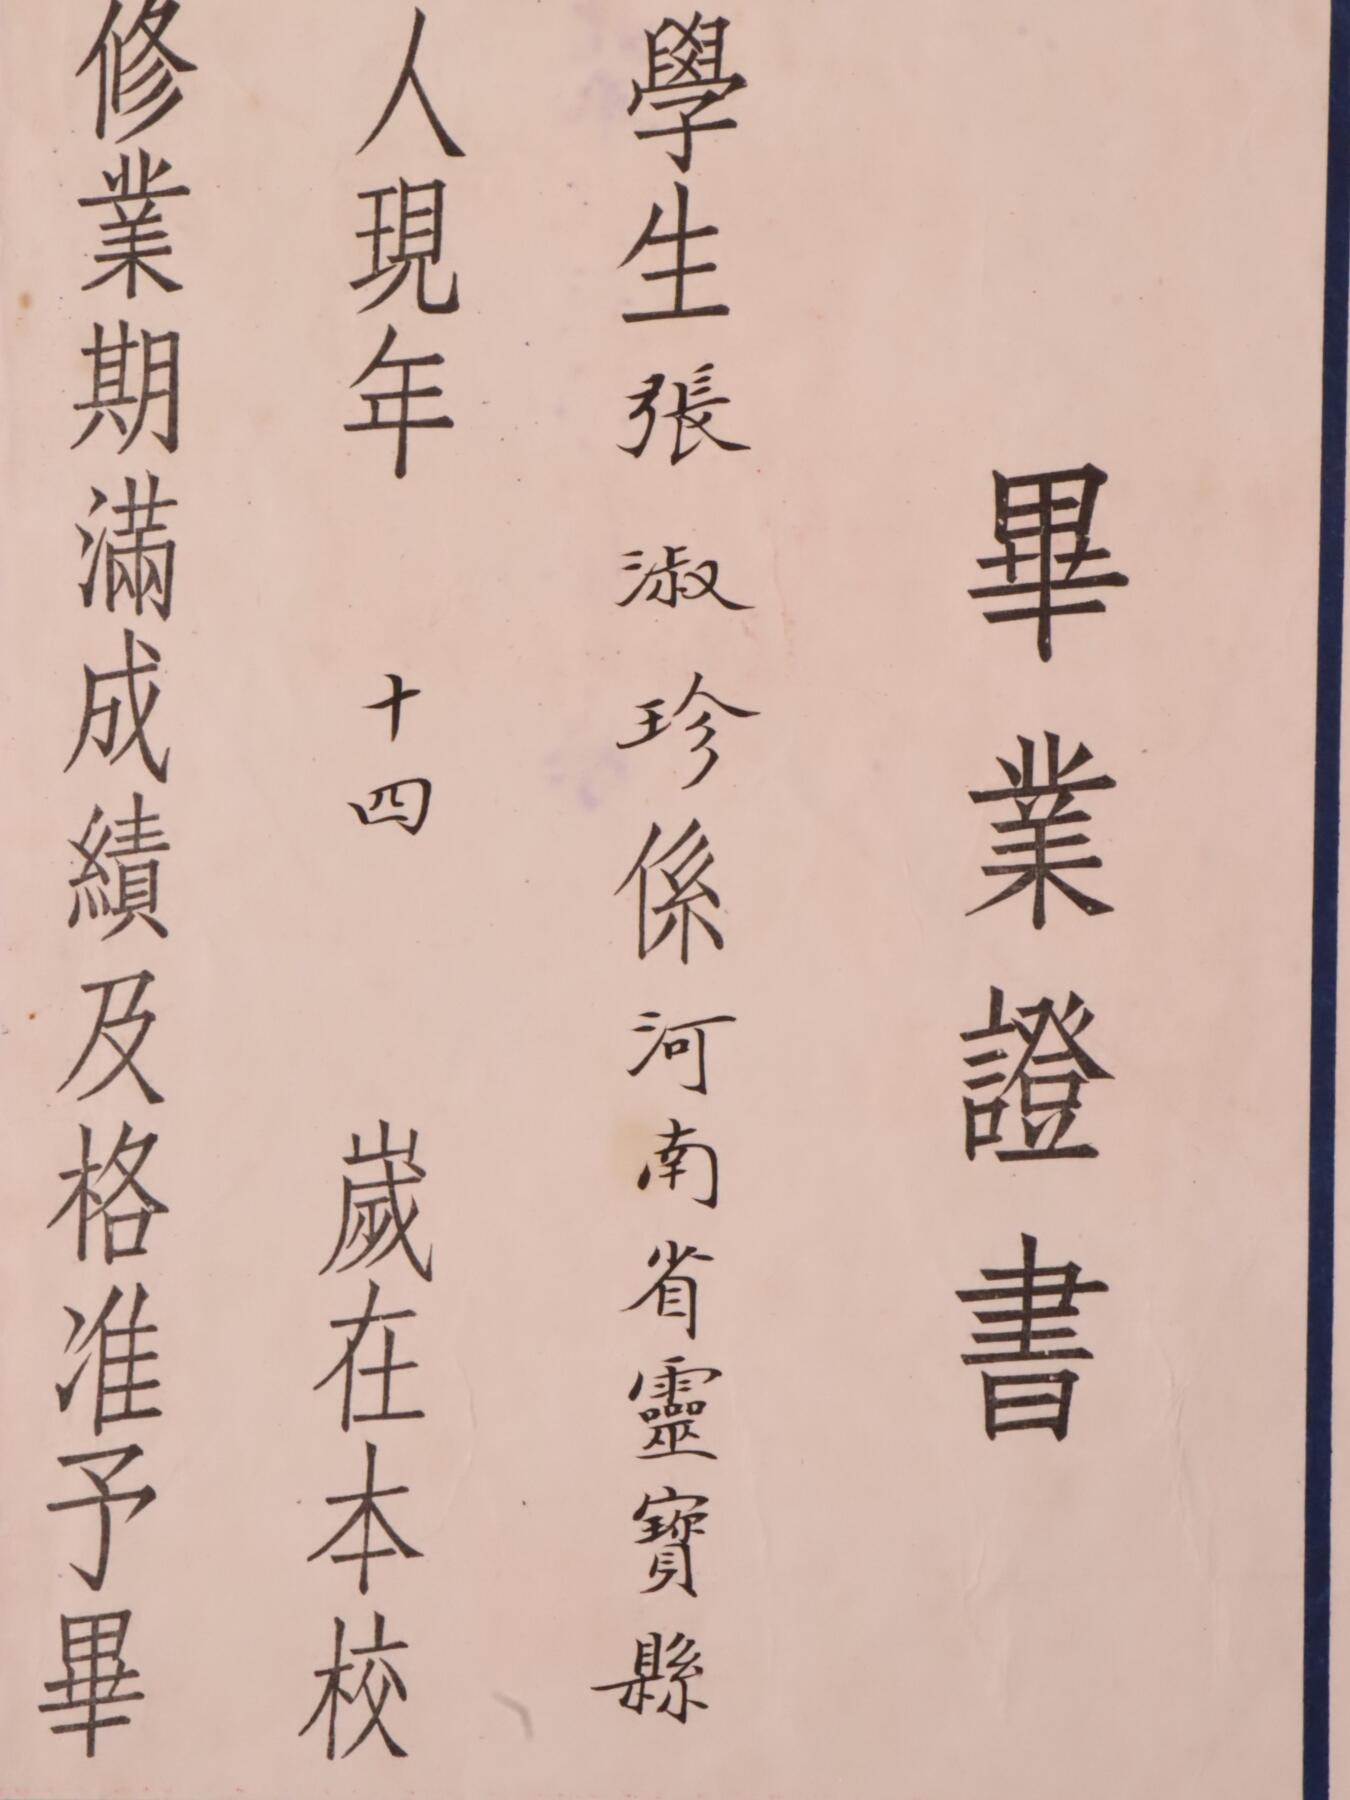 畢業證書
學生張淑珍係河南省靈寶縣
人現年十四歲在本校
修業期滿成績及格准予畢